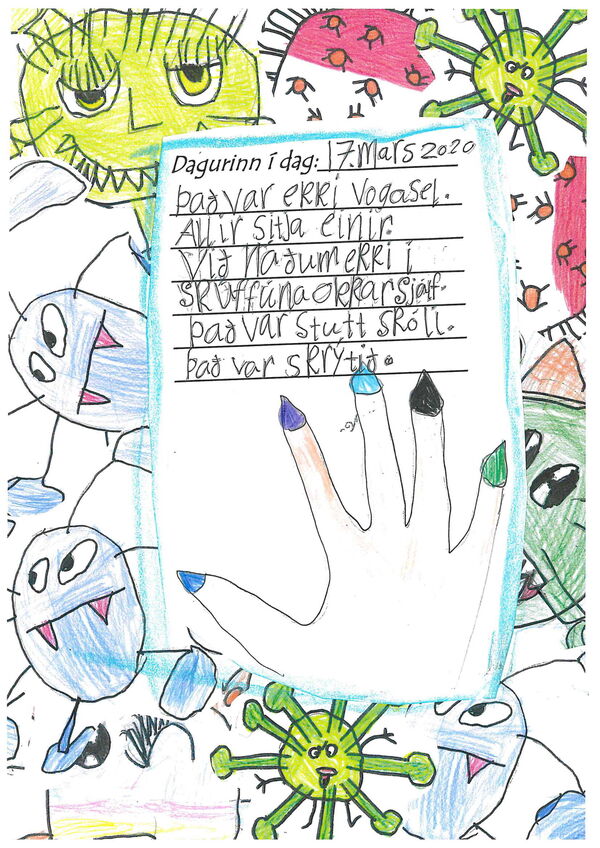 Dagurinn í dag: 17. mars 2020
Það var ekki Vogasel.
Allir sitja einir.
Við náðum ekki í
skúffúna okkar sjálf.
Það var stutt skóli.
Það var skrýtið.